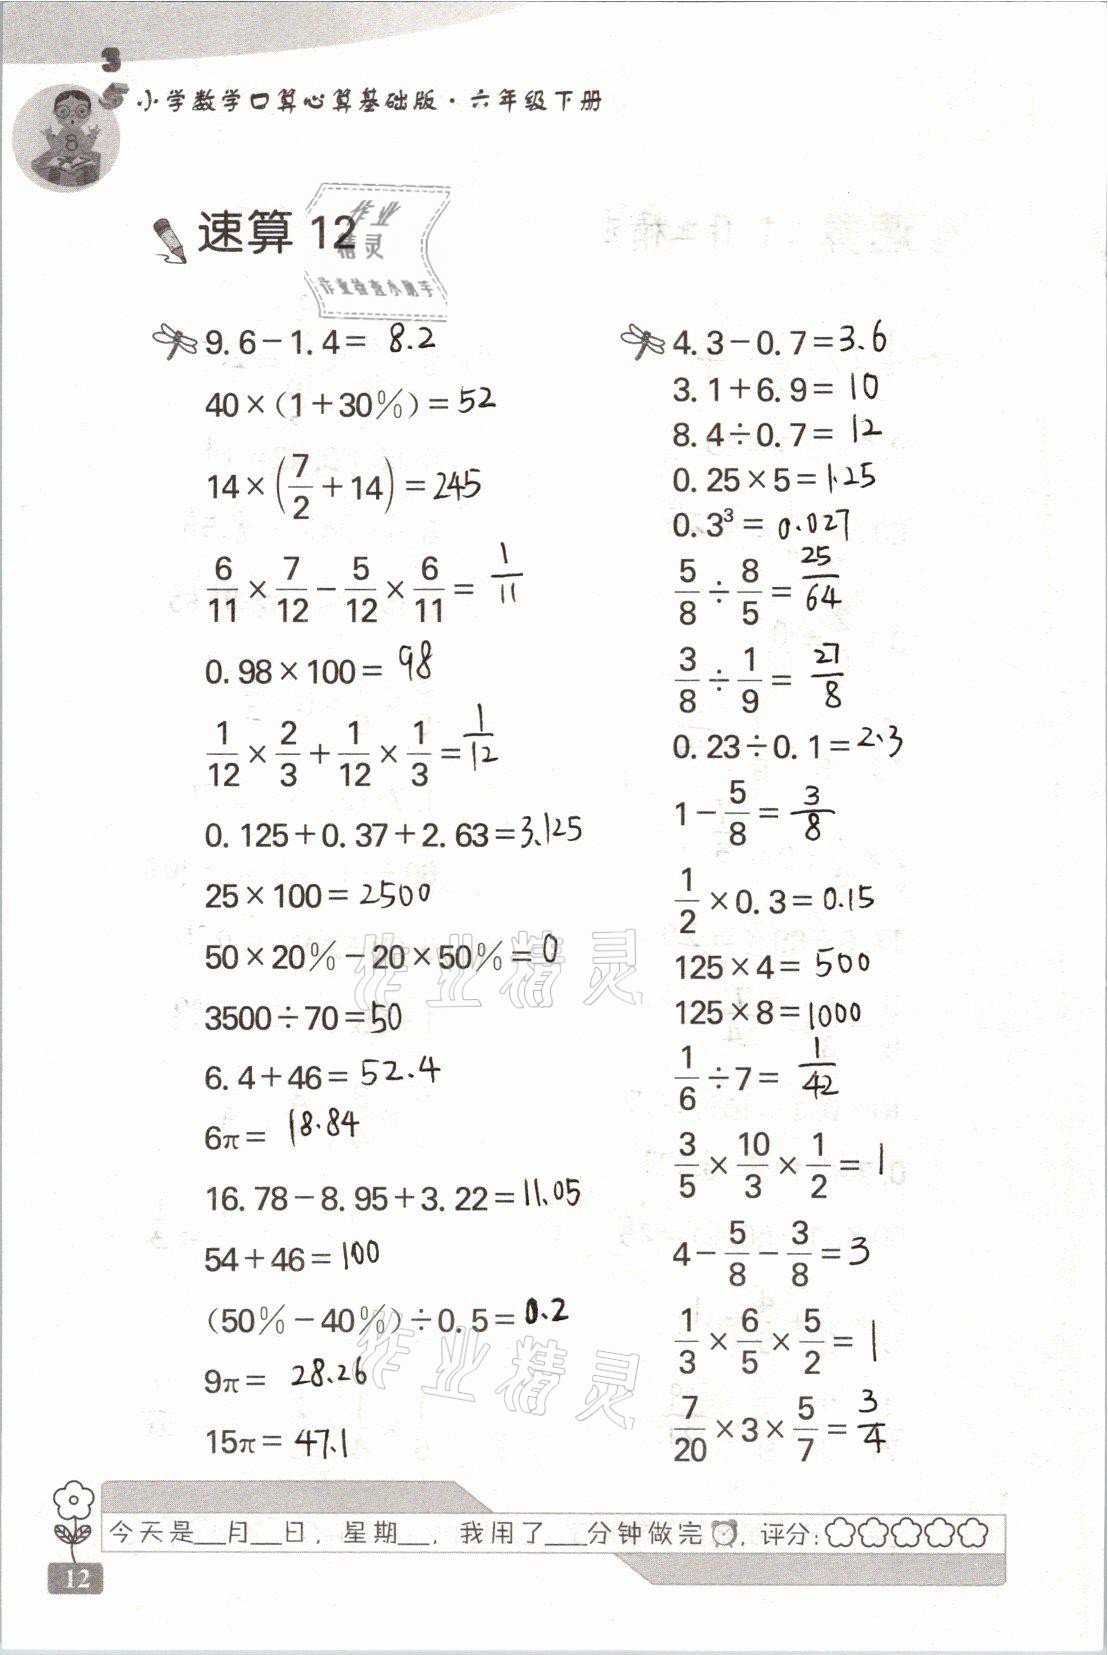 小学数学口算心算基础版·六年级下册
速算 12
作业
精灵
作业检查小助手
9.6-1.4= 8.2
40×(1+30%)=52
14×(7/2+14)=245
6/11×7/12-5/12×6/11=1/11
0.98×100=98
1/12×2/3+1/12×1/3=1/12
0.125+0.37+2.63=3.125
25×100=2500
50×20%-20×50%=0
3500÷70=50
6.4+46=52.4
6π=18.84
16.78-8.95+3.22=11.05
54+46=100
(50%-40%)÷0.5=0.2
9π=28.26
15π=47.1
4.3-0.7=3.6
3.1+6.9=10
8.4÷0.7=12
0.25×5=1.25
0.3³=0.027
5/8÷8/5=25/64
3/8÷1/9=27/8
0.23÷0.1=2.3
1-5/8=3/8
1/2×0.3=0.15
125×4=500
125×8=1000
1/6÷7=1/42
3/5×10/3×1/2=1
4-5/8-3/8=3
1/3×6/5×5/2=1
7/20×3×5/7=3/4
作业精灵
作业精灵
今天是__月__日，星期__，我用了___分钟做完，评分:
12